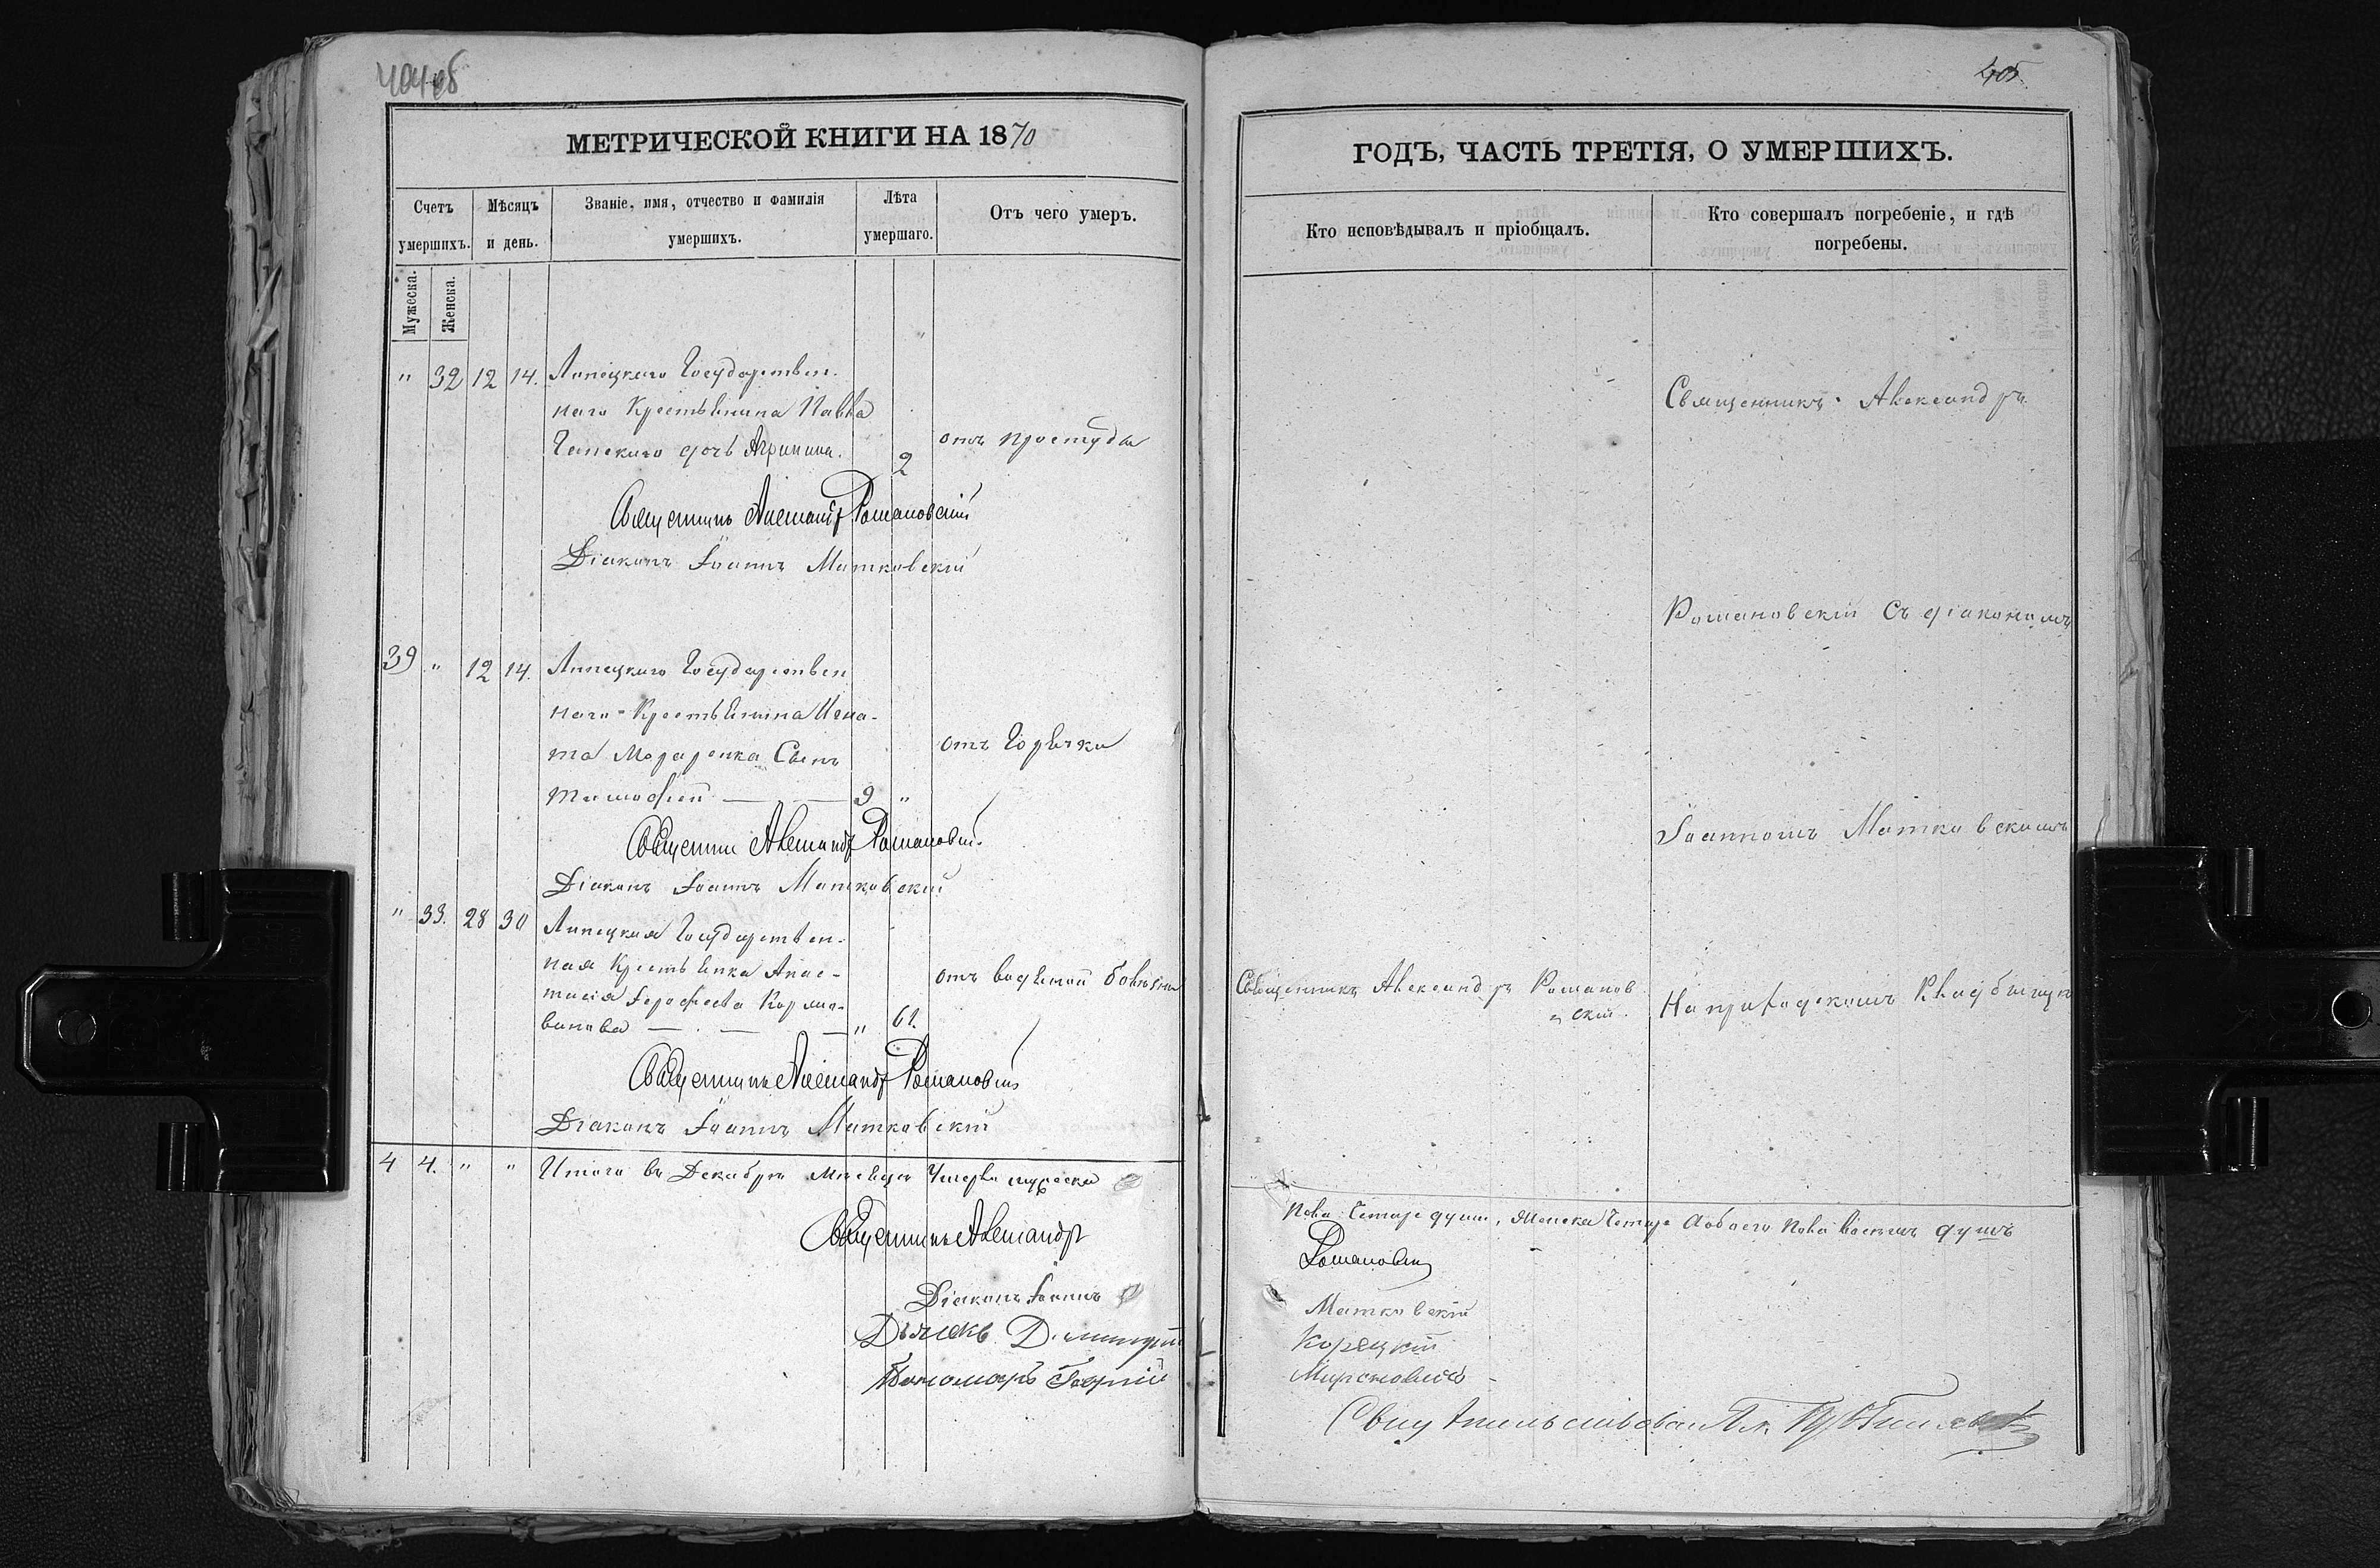 404об
МЕТРИЧЕСКОЙ КНИГИ НА 1870
Счетъ умершихъ.
Мѣсяцъ и день.
Званіе, имя, отчество и фамилія умершихъ.
Лѣта умершаго.
Отъ чего умеръ.
Мужеска.
Женска.
" 32 12 14. Липецкаго Государствен-
наго Крестьянина Павла
дочь Агрипина. 2 отъ простуды
Священникъ Александръ Романовскій
Діаконъ Іоаннъ Матковскій
39 " 12 14. Липецкаго Государствен
наго Крестьянина Игна-
та Сынъ отъ Горячки
Тимофей — 9 "
Священникъ Александръ Романовскій
Діаконъ Іоаннъ Матковскій
" 33. 28 30 Липецкая Государствен-
ная Крестьянка Анас-
тасія отъ водяной болѣзни
— . — — " 61.
Священникъ Александръ Романовскій
Діаконъ Іоаннъ Матковскій
4 4. " " Итого въ Декабрѣ мѣсяцѣ Умерло мужеска
Священникъ Александръ
Діаконъ Іоаннъ
Дьячекъ Димитрій
Пономарь Георгій
405.
ГОДЪ, ЧАСТЬ ТРЕТІЯ, О УМЕРШИХЪ.
Кто исповѣдывалъ и пріобщалъ.
Кто совершалъ погребеніе, и гдѣ погребены.
Священникъ Александръ
Романовскій Съ діакономъ
Іоанномъ Матковскимъ
Священникъ Александръ Романов
скій.
На приходскомъ Кладбищѣ
пола Четыре души, Женска Четыре Аобоего пола восемь душъ
Романовскій
Матковскій
Корецкій